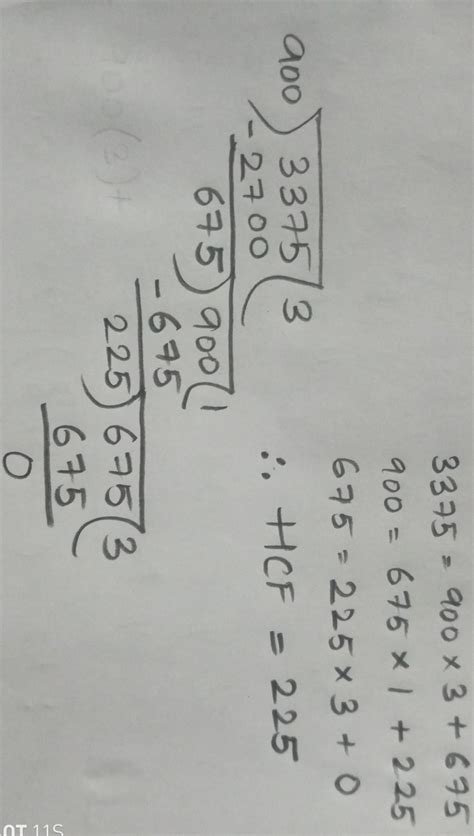 900) 3375 (3
-2700
675) 900 (1
-675
225) 675 (3
675
0
3375 = 900 × 3 + 675
900 = 675 × 1 + 225
675 = 225 × 3 + 0
∴ HCF = 225
OT 11S